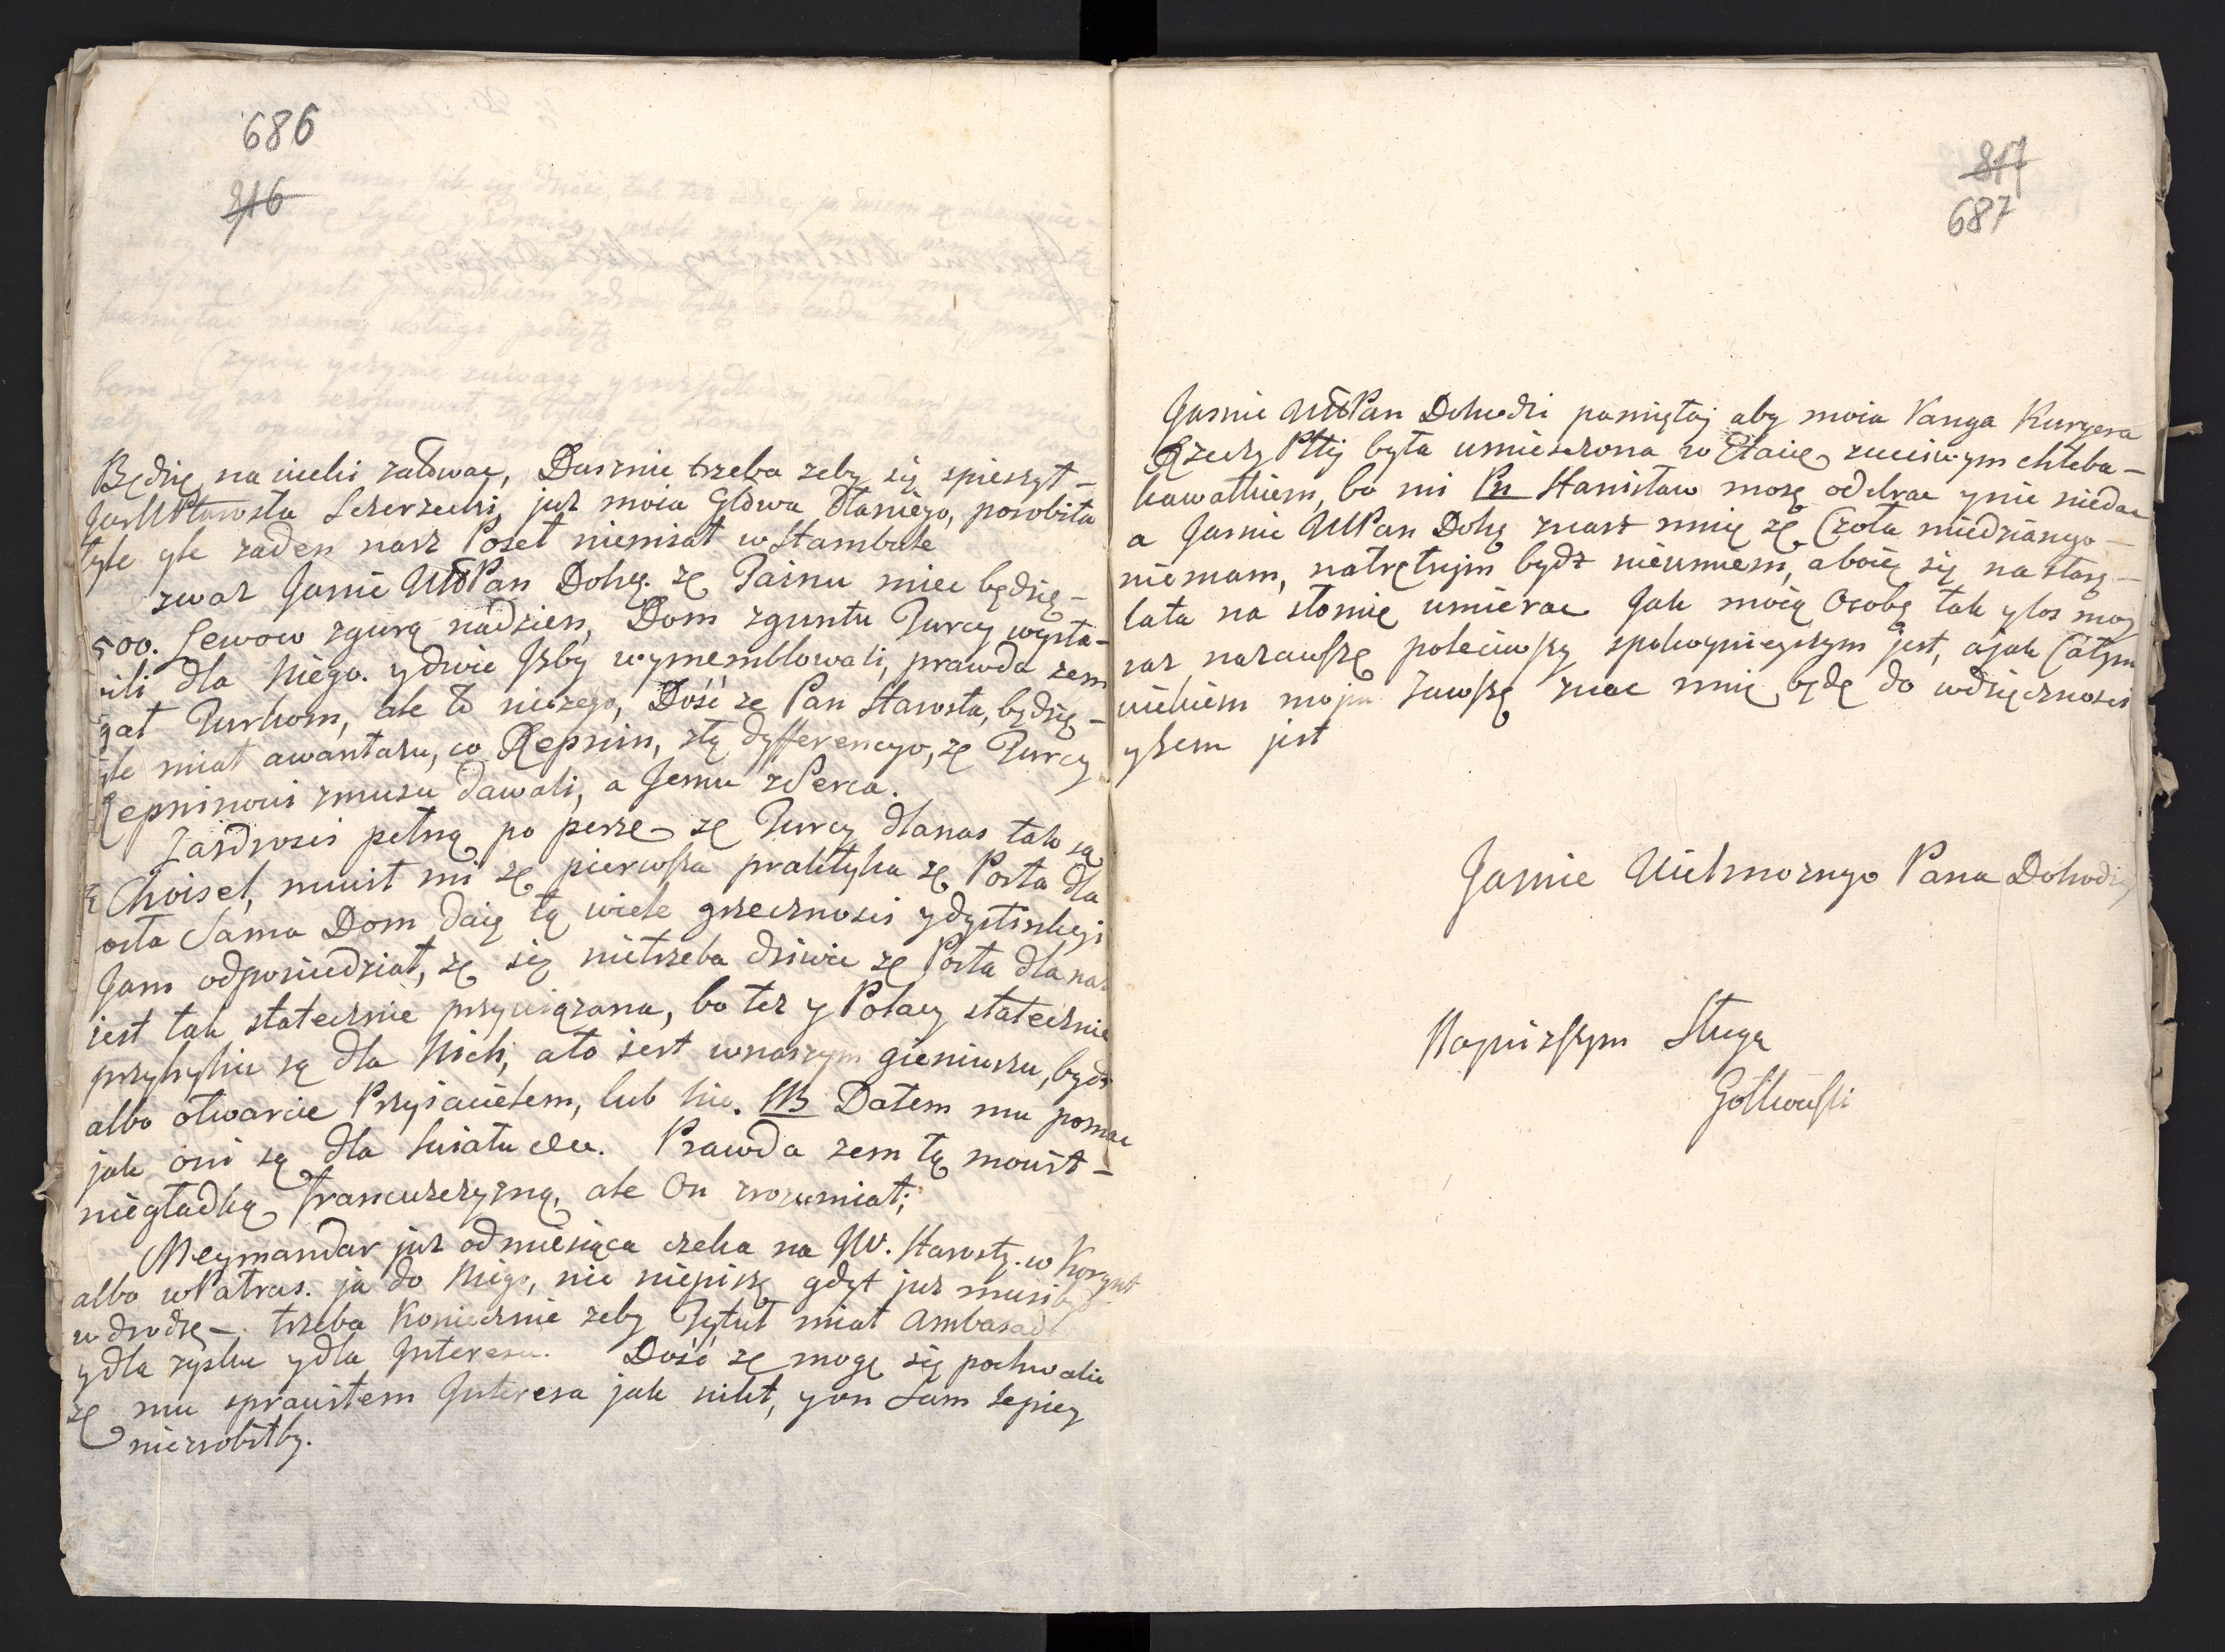 686
816
Będzię na wieki załować, Dusznie trzeba zeby się spieszył –
JasWStarosta Szerzecki, już moia Głowa dlaniego, porobiła
tyle yle zaden nasz Poseł niemiał w Stambule
zwaz Jasnie WWPan Dobrę. zę Tainu miec będzię –
500. Lewow zgurą nadzien, Dom zgruntu Turcy wysta-
wili dla Niego. ydwie Jzby wymemblowali, prawda zem
gał Turkom, ale to niczego, Dość ze Pan Starosta, będzię –
yle miał awantazu, co Repnin, ztę dyfferencyo, zę Turcy
Repninowi zmusu dawali, a Jemu zSerca.
Zazdrosci pełną po perze zę Turcy dlanas tak są
Choisel, muwił mi zę pierwsza praktyka zę Porta dla
osta Sama Dom daię tę wiele grzecznosci ydystinkcji
Jam odpowiedział, zę się nietrzeba dziwic zę Porta dla nas
jest tak statecznie przywiązana, bo tez y Polacy statecznie
przychylni są dla Nich, ato jest wnaszym gieniuszu, bydz
albo otwarcie Przyiacielem, lub nie. NB Dałem mu poznac
jak oni są dla Swiatu etc. Prawda zem tę mowił –
niegładką francuszczyzną, ale On zrozumiał;
Meymandar już odmiesiąca czeka na JW. Starostę. w Korynt
albo wPatras. ja do Niego, nie niepiszę gdyż już musi bydz
wdrodzę – trzeba Koniecznie zeby Tytuł miał Ambasad
ydla zysku ydla Interesu. Dość zę mogę się pochwalic
zę mu sprawiłem Interesa jak nikt, yon Sam lepiey
niezrobiłby.
817
687
Jasnie WWPan Dobrodzi pamiętaj aby moia Ranga Kuryera
Rzeczy Pltej była umieszczona w Etacie zuciwym chleba –
kawałkiem, bo mi Pn Stanisław mozę odebrac ynie niedac
a Jasnie WWPan Dobę znasz mnię zę Czoła miedzianego –
niemam, natrętnym bydz nieumiem, aboię się na starę –
lata na słomię umierac Jak moię Osobę tak ylos moy
raz nazawszę poleciwszy spokoynieyszym jest, ajak Całym
wiekiem moim zawszę znac mnię będę do wdzięcznosci
yzem jest
Jasnie Wielmoznego Pana Dobrodzi
Nayniższym Sługą